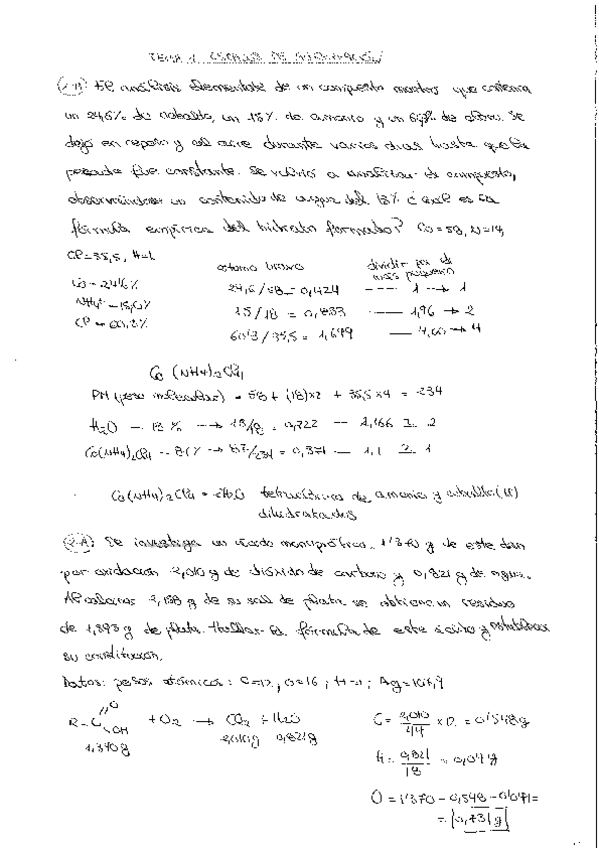 TEMA 1
2-11 El análisis elemental de un compuesto mostró que contenía
un 24,6% de cobalto, un 15% de amonio y un 60,3% de cloro. Se
dejó en reposo y al aire durante varios días hasta que la
pesada fue constante. Se volvió a analizar el compuesto,
observándose un contenido de agua del 13% ¿Cuál es la
fórmula empírica del hidrato formado? Co = 58, N = 14,
Cl = 35,5, H = 1
átomo gramo dividir por el
más pequeño
Co - 24,6% 24,6/58 = 0,424 ---- 1 → 1
NH4+ - 15,0% 15/18 = 0,833 —— 1,96 → 2
Cl - 60,3% 60'3/35,5 = 1,699 —— 4,00 → 4
Co (NH4)2 Cl4
PM (peso molecular) = 58 + (18)x2 + 35,5 x 4 = 234
H2O — 13% → 13/18 = 0,722 -- ≃ 2
Co(NH4)2Cl4 -- 87% → 87/234 = 0,371 — ≃ 1
Co(NH4)2Cl4 · 2H2O de amonio y cobalto (II)
dihidratado
2-A Se investiga un ácido monoprótico. 1'370 g de este dan
por oxidación 2,010 g de dióxido de carbono y 0,821 g de agua.
Al calcinar 2,158 g de su sal de plata se obtiene un residuo
de 1,393 g de plata. Hallar la fórmula de este ácido y establecer
su constitución.
Datos: pesos atómicos: C=12, O=16; H=1; Ag=107,9
R-C O OH + O2 → CO2 + H2O C = 2,010/44 x 12 = 0'548 g
1,370 g 2,010 g 0,821 g
H = 0,821/18 = 0,091 g
O = 1'370 - 0,548 - 0'091 =
= 0,731 g